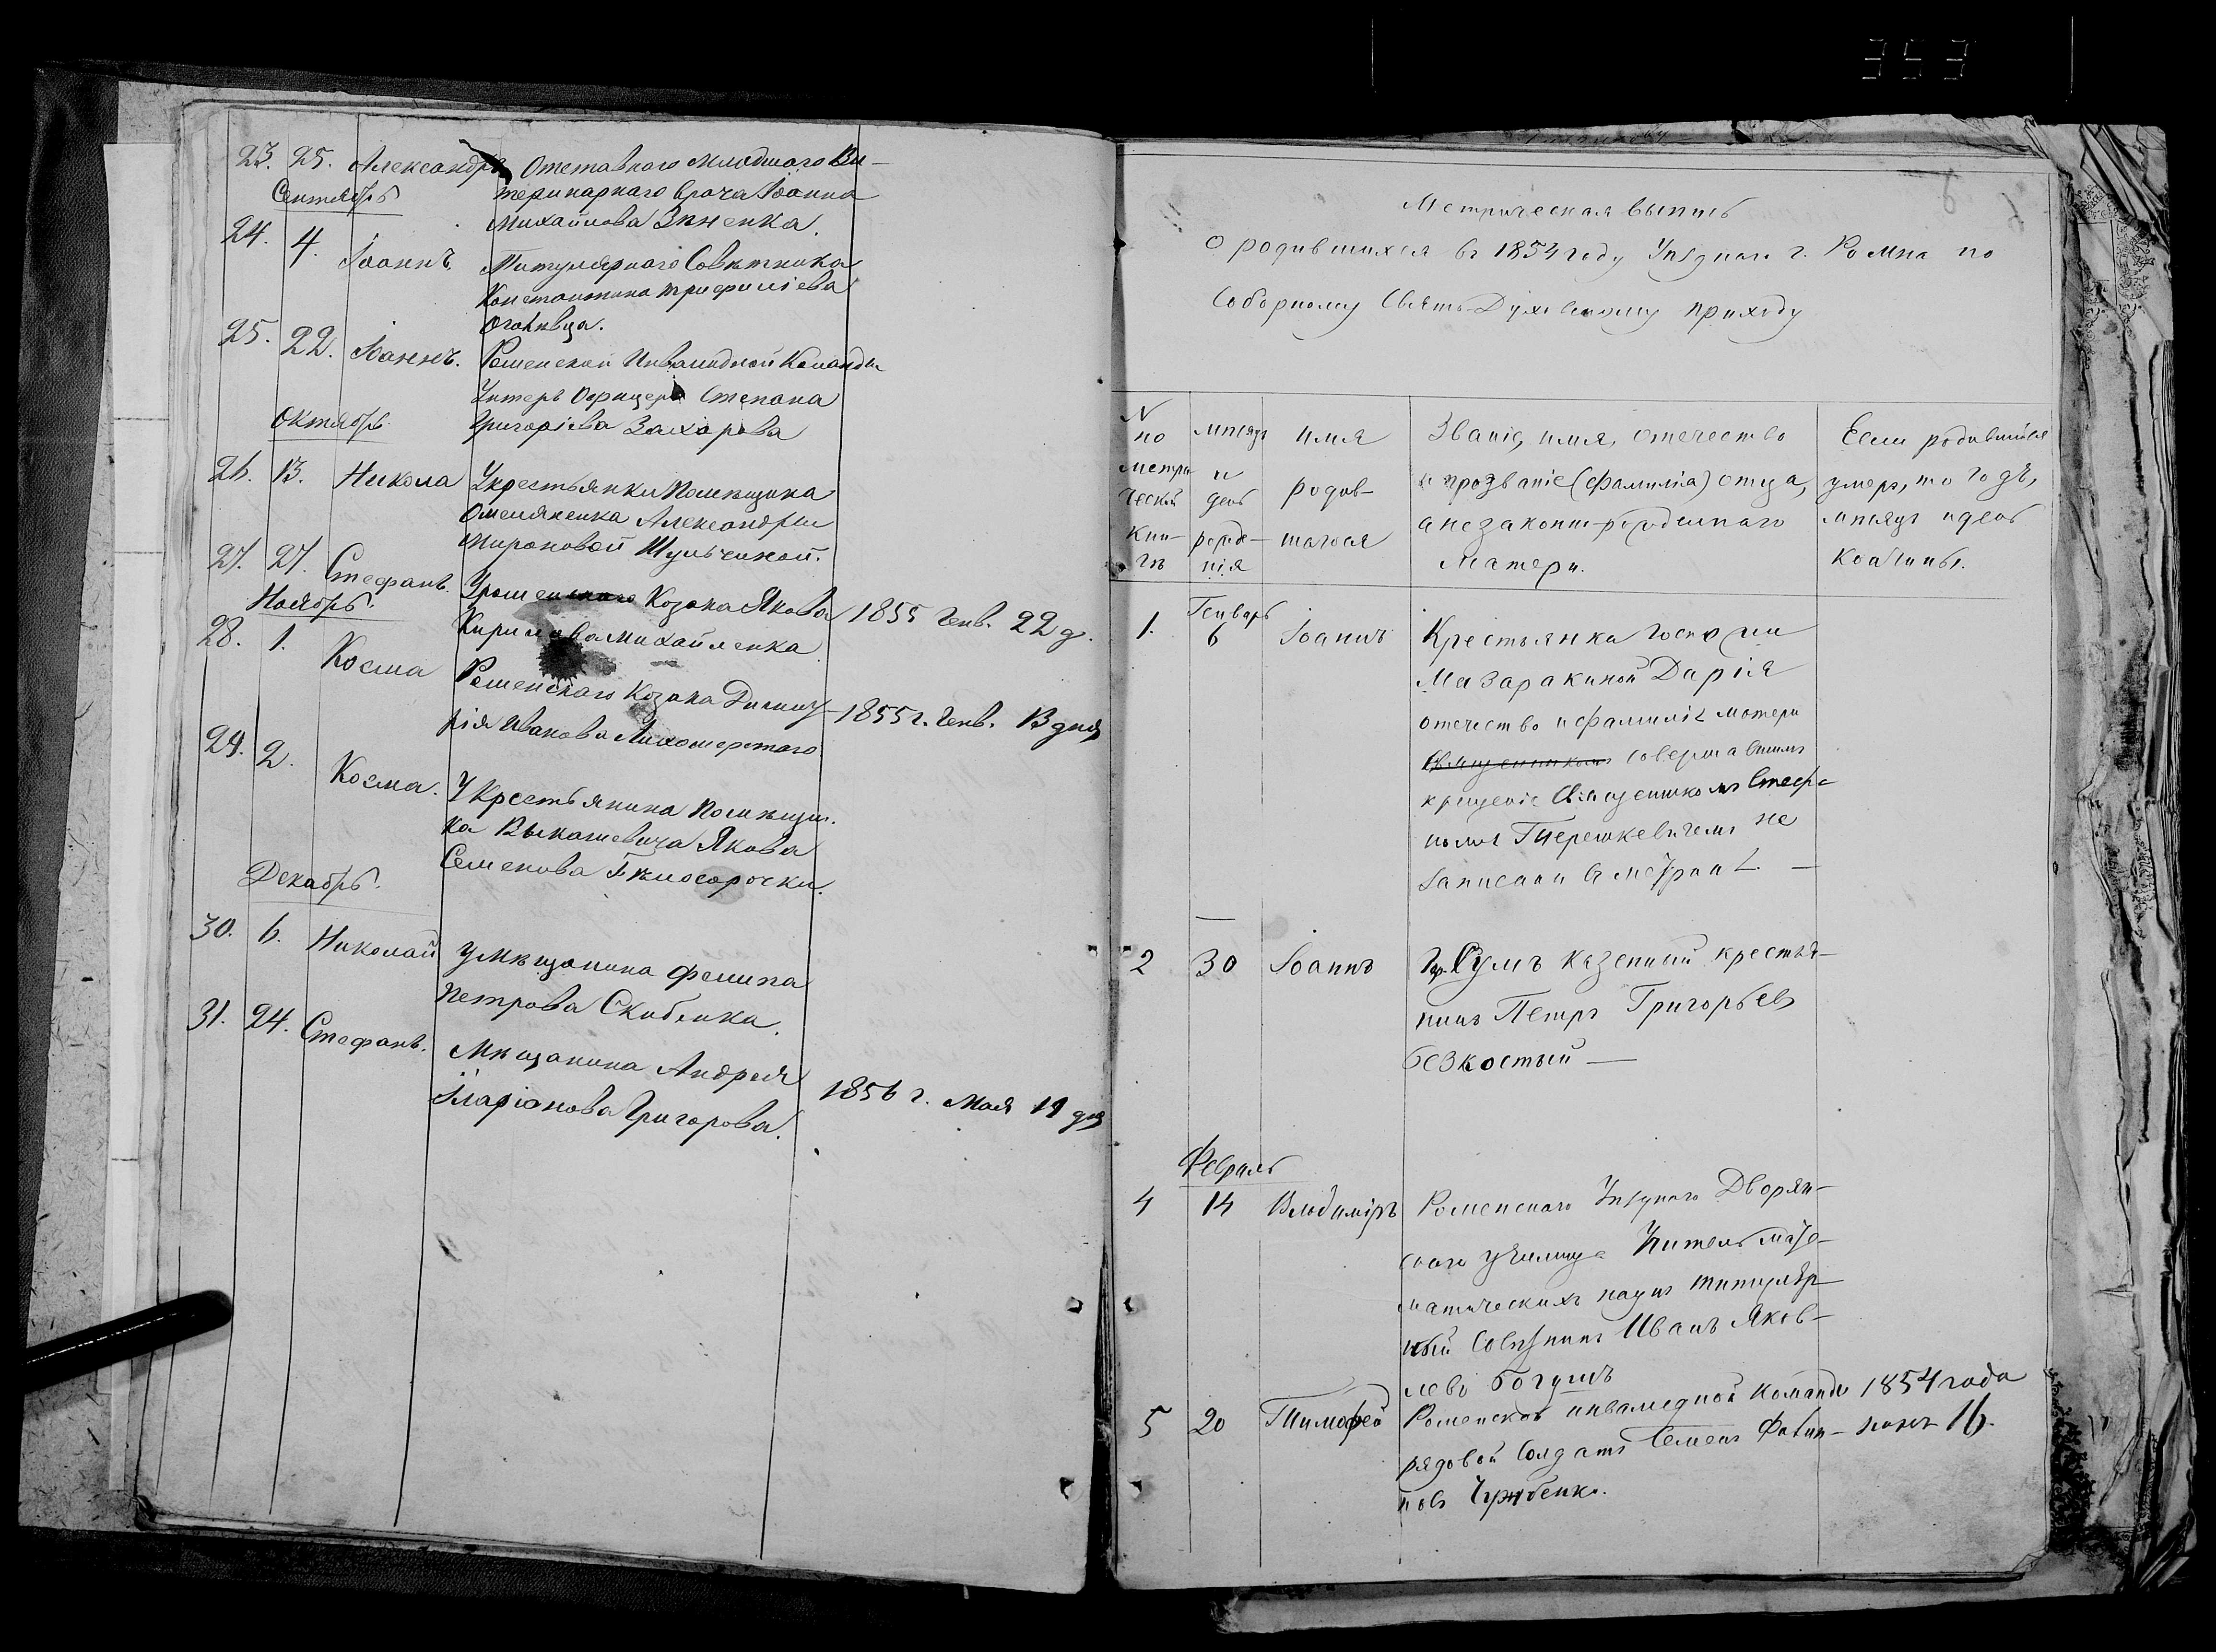 353
23. 25. Александръ Отставного младшого Ве-
Сентябрь теринарнаго врача Іоанна
Михайлова Зиненка.
24. 4. Іоаннъ. Титулярнаго Совѣтника
Константина Трифиліева
Огонвца.
25. 22. Іоаннъ. Роменской Инвалидной Команды
Унтеръ Офицера Степана
Октябрь Григоріева Захарова
26. 13. Никола У крестьянки Помѣщика
Омеляненка Александры
Мироновой Шульчиной.
27. 27. Стефанъ. У роменского Козака Якова 1855 Генв. 22 д.
Ноябрь. Кирилова Михайленка
28. 1. Косма Роменскаго Козака Димит- 1855 г. Генв. 13 дня
рія Иванова Лихошерстого
29. 2. Косма. У Крестьянина Помѣщи-
ка Выкашевича Якова
Семенова Бѣлосорочки.
Декабрь.
30. 6. Николай У Мѣщанина Филипа
Петрова Скибенка.
31. 24. Стефанъ. Мѣщанина Андрея
Иларіонова Григорова. 1856 г. Мая 11 дня
Метрическая выпись
о родившихся въ 1854 году Уѣзднаго г. Ромна по
Соборному Свято-Духовскому приходу
N по метрической книгѣ
мѣсяцъ и день рожденія
имя родившагося
Званіе, имя, отечество
и прозваніе (фамилія) отца,
а незаконно-рожденнаго
матери.
Если родившійся
умеръ, то годъ,
мѣсяцъ и день
кончины.
Генварь
1. 6 Іоаннъ Крестьянка госпожи
Мазаракиной Дарія
отечество и фамилія матери
совершавшимъ
крещеніе Священникомъ Стефа-
номъ Терешкевичемъ не
записаны въ метрикѣ —
2 30 Іоаннъ Гор. Сумъ казенный крестья-
нинъ Петръ Григорьевъ
безкостый —
Февраль
4 14 Владиміръ Роменскаго Уѣзднаго Дворян-
скаго училища Учитель мате-
матическихъ наукъ титуляр-
ный Совѣтникъ Иванъ Яков-
левъ Богушъ
5 20 Тимофей Роменской инвалидной команды 1854 года
рядовой Солдатъ Семенъ 16.
новъ